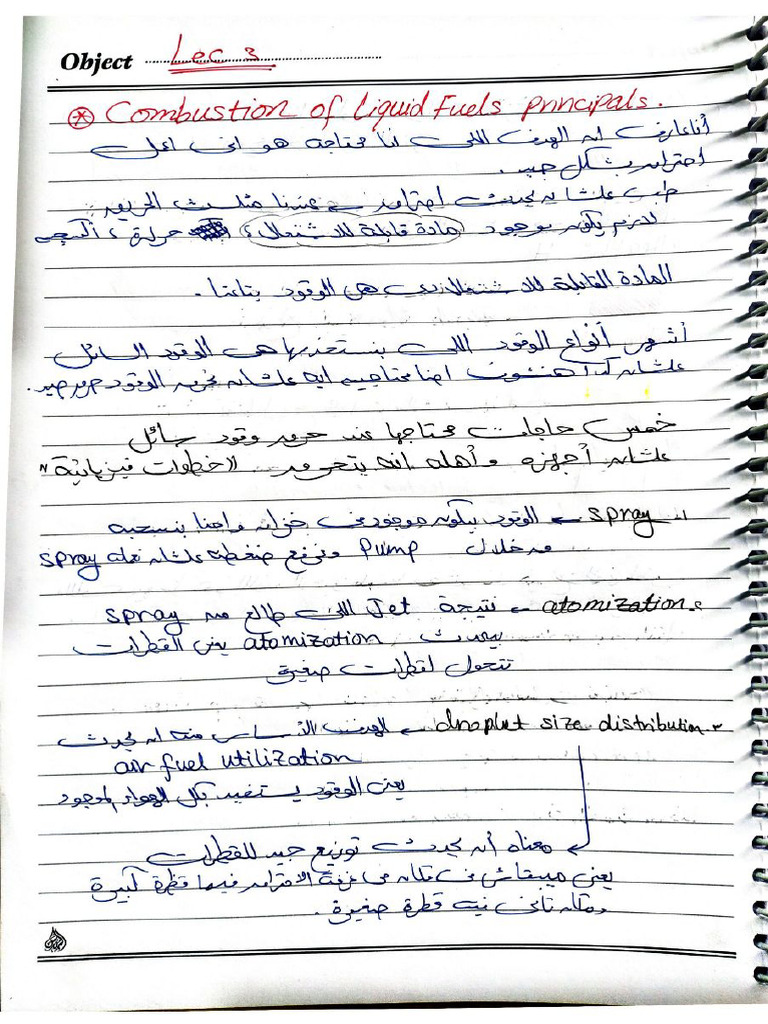 Object Lec 3
* Combustion of Liquid Fuels principals.
أنا عارف ان الهدف اللى انا محتاجه هو انى اعمل
احتراق بشكل جيد.
طيب علشان يحدث احتراق عندنا مثلث الحريق
لازم يكون موجود (مادة قابلة للاشتعال) ، حرارة ، أكسجين
المادة القابلة للاشتعال هى الوقود بتاعنا.
أشهر أنواع الوقود اللى بنستخدمها هى الوقود السائل
علشان كدا هنشوف احنا محتاجين ايه علشان نحرق الوقود حرق جيد.
خمس حاجات محتاجها عند حرق وقود سائل
علشان أجهزه وأهله انه يتحرق "خطوات فيزيائية"
١- spray ← الوقود بيكون موجود فى خزان واحنا بنسحبه
من خلال Pump ونرفع ضغطه علشان spray
٢- atomization ← نتيجة Jet اللى طالع من spray
بيحدث atomization يعنى القطرات
تتحول لقطرات صغيرة
٣- droplet size distribution ← الهدف الأساسى منه ان يحدث
air fuel utilization
يعنى الوقود يستفيد بكل الهواء الموجود
معناه أن يحدث توزيع جيد للقطرات
يعنى ميبقاش فى مكان فى غرفة الاحتراق فيها قطرة كبيرة
ومكان تانى فيه قطرة صغيرة.